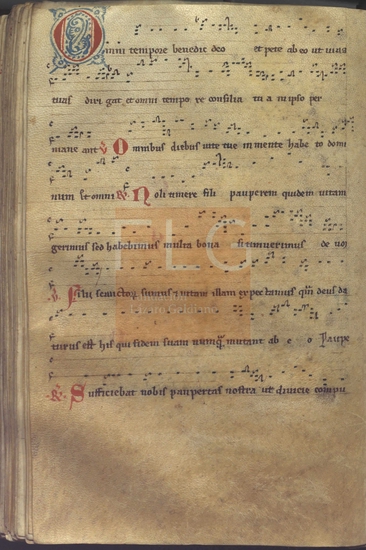 Omni tempore benedic deo et pete ab eo ut uias
tuas dirigat et omni tempore consilia tua in ipso per
maneant ℣ Omnibus diebus uite tue in mente habeto domi
num Et omni ℟ Noli timere fili pauperem quidem uitam
gerimus sed habebimus multa bona si timuerimus deum
℣ Filii sanctorum sumus et uitam illam expectamus quam deus da
turus est his qui fidem suam numquam mutant ab eo Paupe
℟ Sufficiebat nobis paupertas nostra ut diuicie compu